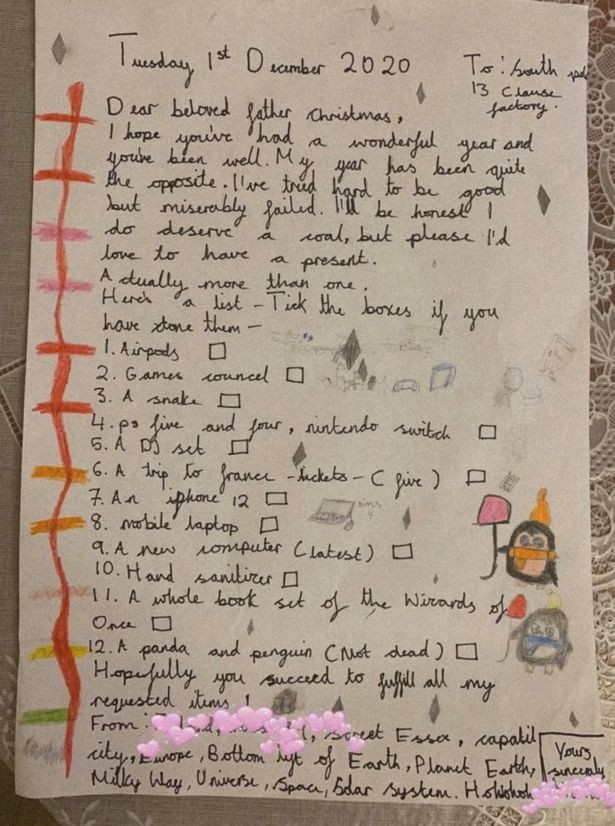 Tuesday 1st December 2020
To: South pole
13 Clause
factory.
Dear beloved father christmas,
I hope you've had a wonderful year and
you've been well. My year has been quite
the opposite. I've tried hard to be good
but miserably failed. I'll be honest I
do deserve a coal, but please I'd
love to have a present.
Actually more than one.
Here's a list - Tick the boxes if you
have done them -
1. Airpods
2. Games councel
3. A snake
4. ps five and four, nintendo switch
5. A DJ set
6. A trip to france - tickets - ( five )
7. An iphone 12
8. mobile laptop
9. A new computer (latest)
10. Hand sanitizer
11. A whole book set of the Wizards of
Once
12. A panda and penguin (Not dead)
Hopefully you succeed to fulfill all my
requested items !
From : street Essex, capatil
city, Europe, Bottom of Earth, Planet Earth,
Milky Way, Universe, Space, Solar system. Hohohoh
Yours
sincerely